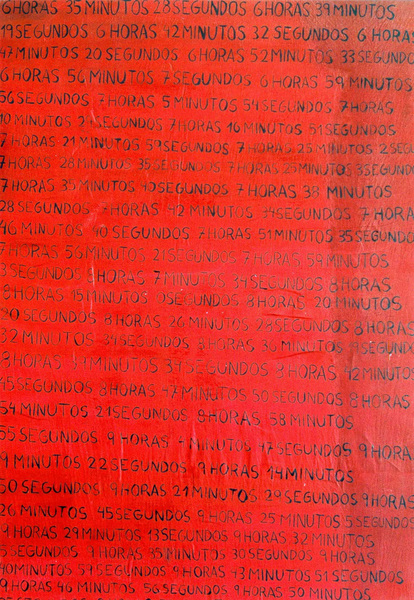 6 HORAS 35 MINUTOS 28 SEGUNDOS 6 HORAS 39 MINUTOS
19 SEGUNDOS 6 HORAS 42 MINUTOS 32 SEGUNDOS 6 HORAS
47 MINUTOS 20 SEGUNDOS 6 HORAS 52 MINUTOS 33 SEGUNDOS
6 HORAS 56 MINUTOS 7 SEGUNDOS 6 HORAS 59 MINUTOS
56 SEGUNDOS 7 HORAS 5 MINUTOS 54 SEGUNDOS 7 HORAS
10 MINUTOS SEGUNDOS 7 HORAS 16 MINUTOS 51 SEGUNDOS
7 HORAS 21 MINUTOS 57 SEGUNDOS 7 HORAS 25 MINUTOS 2 SEGU
7 HORAS 28 MINUTOS 35 SEGUNDOS 7 HORAS MINUTOS SEGUNDOS
7 HORAS 35 MINUTOS 40 SEGUNDOS 7 HORAS 38 MINUTOS
28 SEGUNDOS 7 HORAS 42 MINUTOS SEGUNDOS 7 HORAS
46 MINUTOS 40 SEGUNDOS 7 HORAS 51 MINUTOS 35 SEGUNDOS
7 HORAS 56 MINUTOS 21 SEGUNDOS 7 HORAS 59 MINUTOS
3 SEGUNDOS 8 HORAS 7 MINUTOS 34 SEGUNDOS 8 HORAS
8 HORAS 15 MINUTOS SEGUNDOS 8 HORAS 20 MINUTOS
30 SEGUNDOS 8 HORAS 26 MINUTOS 28 SEGUNDOS 8 HORAS
32 MINUTOS SEGUNDOS 8 HORAS 36 MINUTOS SEGUNDOS
8 HORAS 39 MINUTOS 39 SEGUNDOS 8 HORAS 42 MINUTOS
45 SEGUNDOS 8 HORAS 47 MINUTOS 50 SEGUNDOS 8 HORAS
54 MINUTOS 21 SEGUNDOS 8 HORAS 58 MINUTOS
55 SEGUNDOS 9 HORAS MINUTOS 47 SEGUNDOS 9 HORAS
9 MINUTOS 22 SEGUNDOS 9 HORAS 14 MINUTOS
50 SEGUNDOS 9 HORAS 21 MINUTOS 39 SEGUNDOS 9 HORAS
26 MINUTOS 45 SEGUNDOS 9 HORAS 25 MINUTOS SEGUNDOS
9 HORAS 29 MINUTOS 13 SEGUNDOS 9 HORAS 32 MINUTOS
SEGUNDOS 9 HORAS MINUTOS 30 SEGUNDOS 9 HORAS
40 MINUTOS 56 SEGUNDOS 9 HORAS 43 MINUTOS 51 SEGUNDOS
9 HORAS 46 MINUTOS 56 SEGUNDOS 9 HORAS 50 MINUTOS